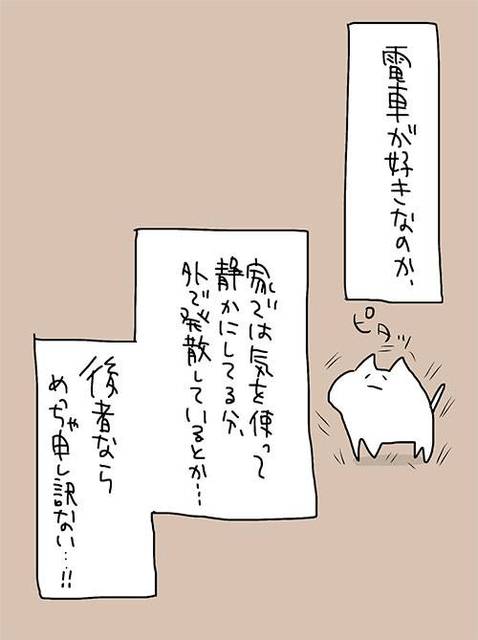 電車が好きなのか、
家では気を使って
静かにしてる分、
外で発散しているとか…
後者なら
めっちゃ申し訳ない…!!
ピタッ